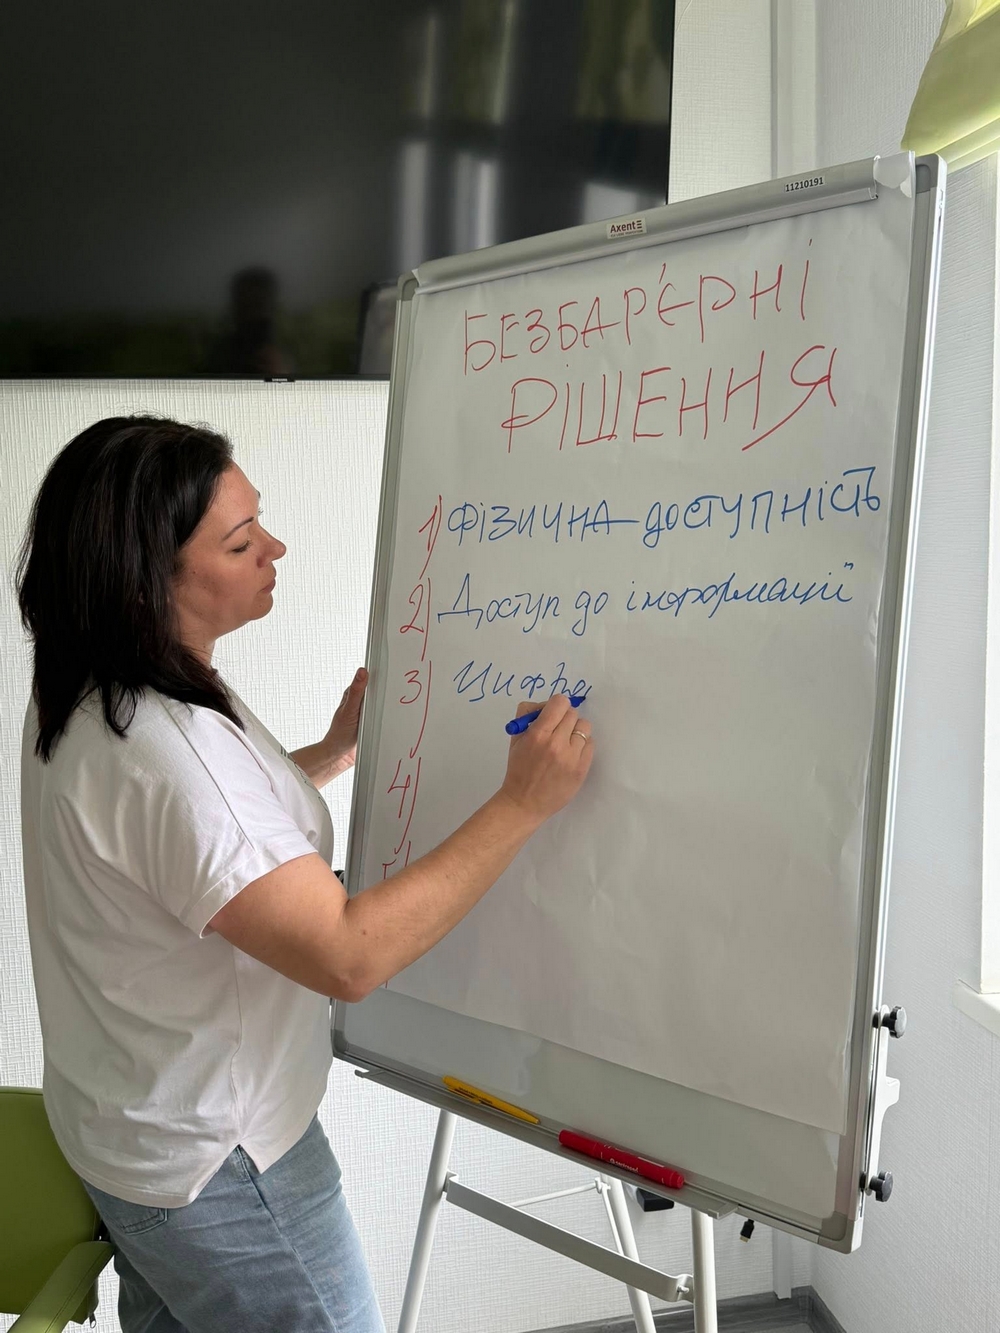 11210191
Axent
БЕЗБАР'ЄРНІ
РІШЕННЯ
1) ФІЗИЧНА ДОСТУПНІСТЬ
2) Доступ до інформації
3) Цифро
4)
5)
SAMSUNG